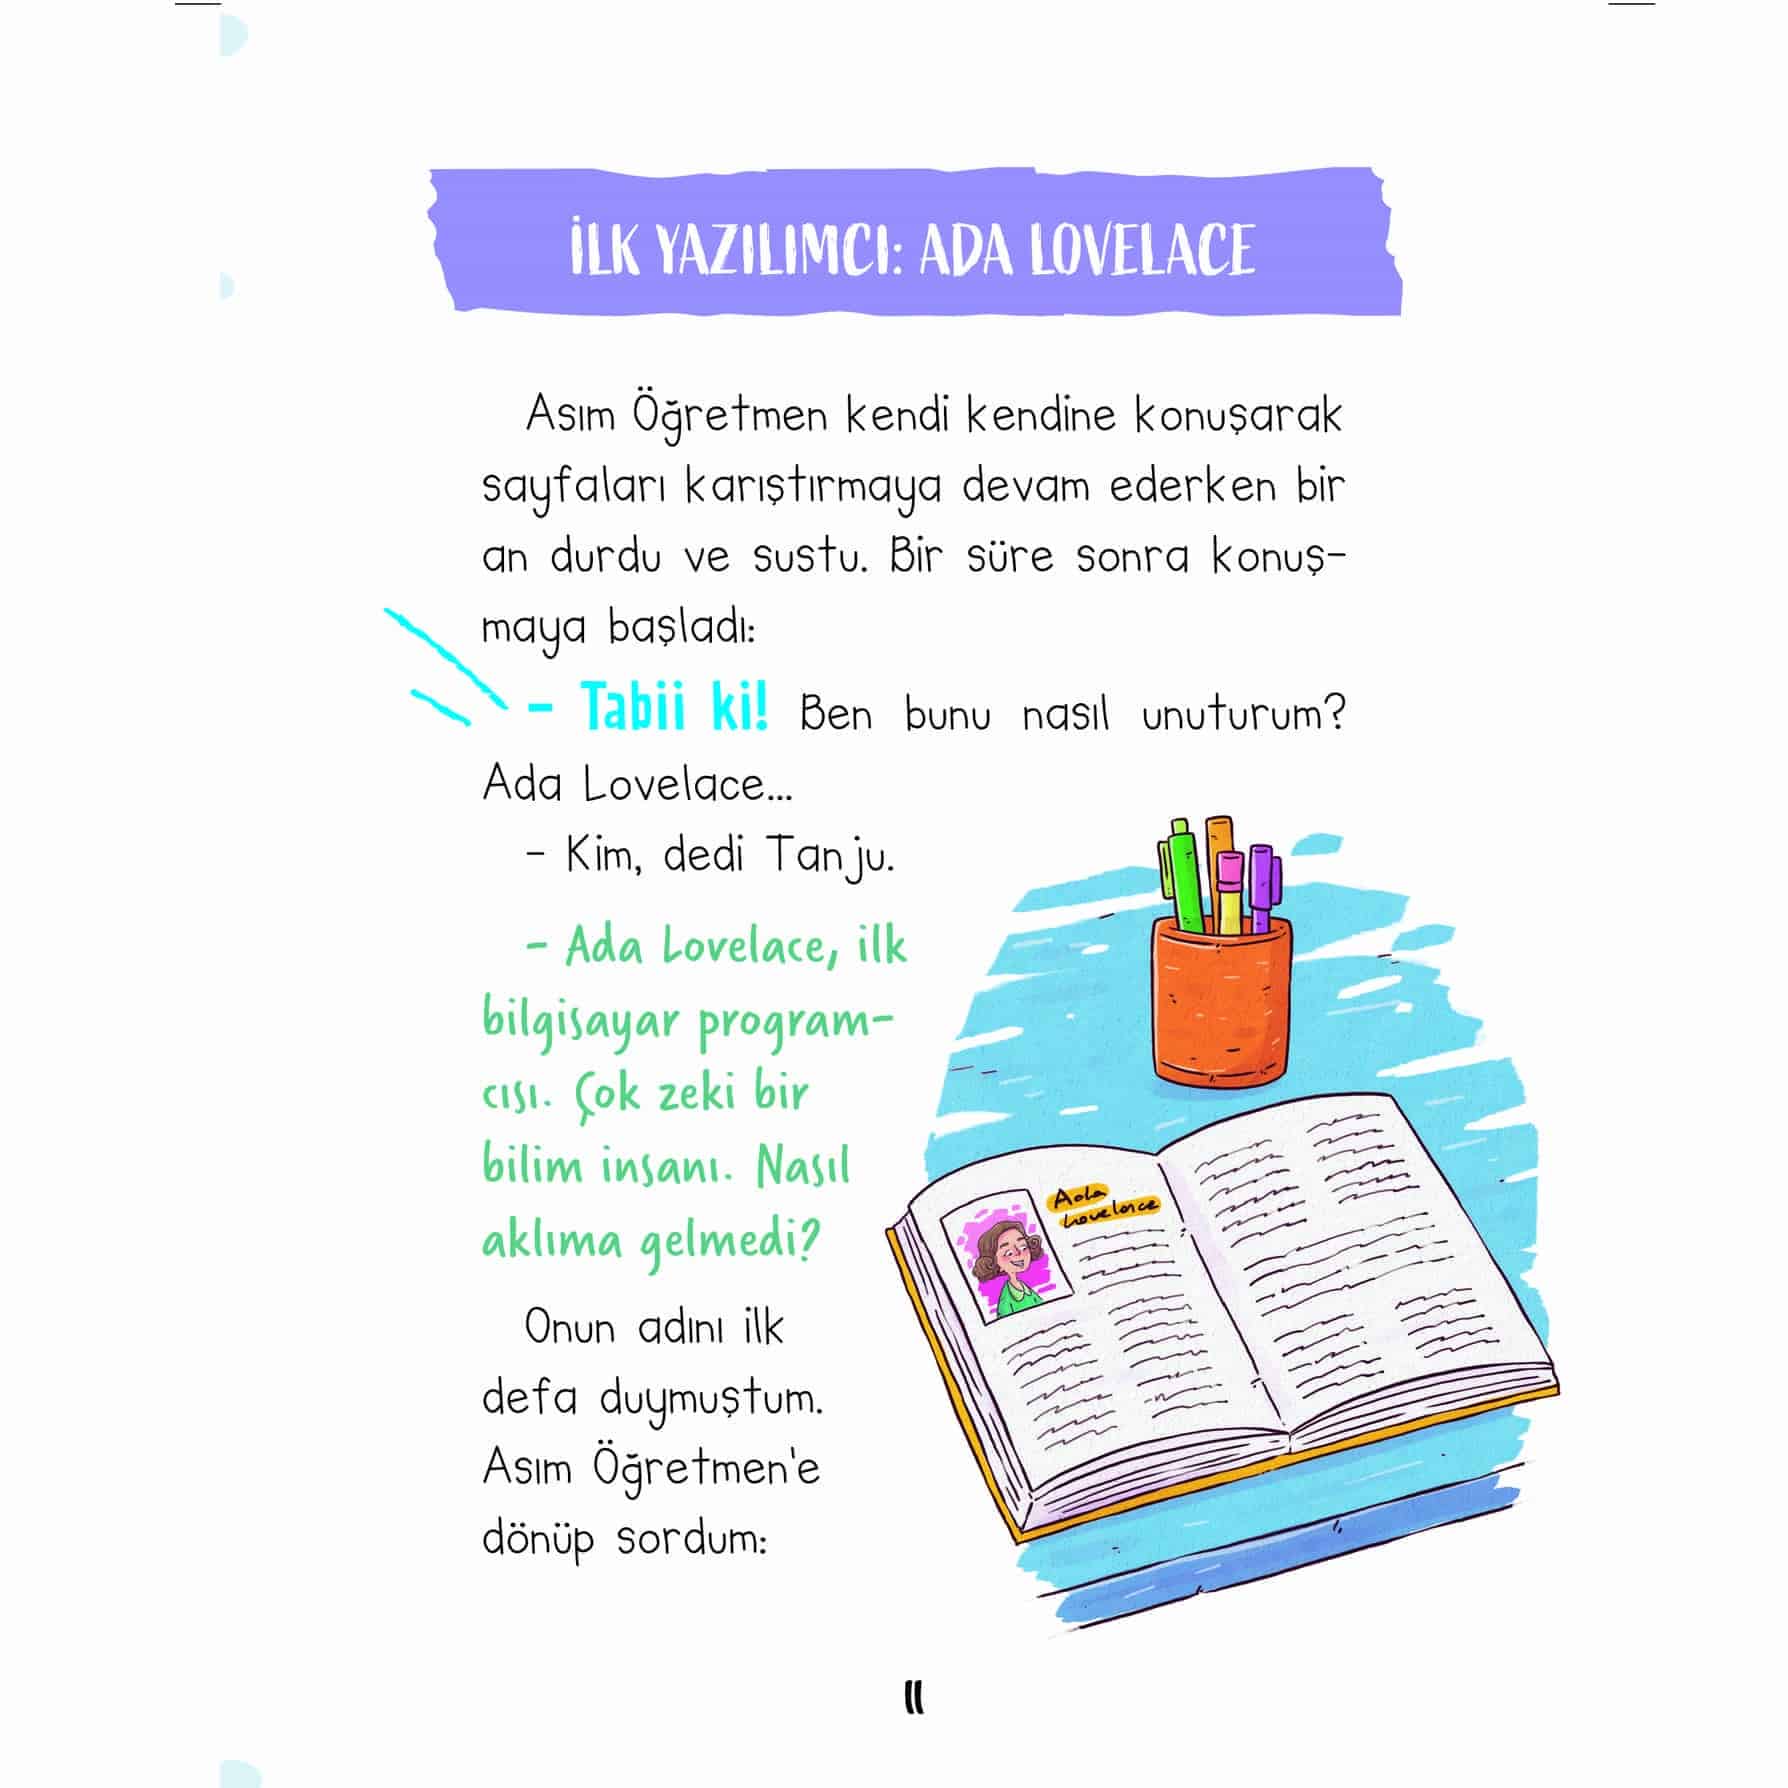 İLK YAZILIMCI: ADA LOVELACE
Asım Öğretmen kendi kendine konuşarak
sayfaları karıştırmaya devam ederken bir
an durdu ve sustu. Bir süre sonra konuş-
maya başladı:
- Tabii ki! Ben bunu nasıl unuturum?
Ada Lovelace...
- Kim, dedi Tanju.
- Ada Lovelace, ilk
bilgisayar program-
cısı. Çok zeki bir
bilim insanı. Nasıl
aklıma gelmedi?
Onun adını ilk
defa duymuştum.
Asım Öğretmen'e
dönüp sordum:
Ada
Lovelace
11